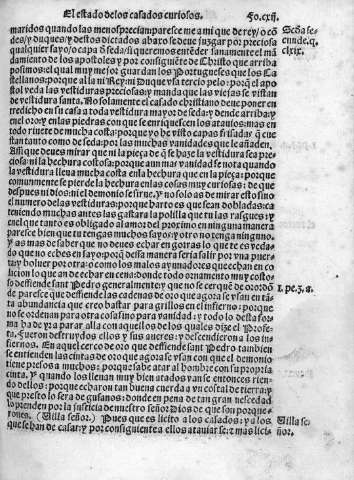 El estado de los casados curiosos. Fo.cxij.
maridos quando las menosprecian: paresceme a mi que de rey/ o cõ
des/y duques/y destos dictados abaxo se deue juzgar por preciosa
qualquier sayo/o capa d̃ seda: si queremos entẽder sanamente el mã
damiento de los apostoles/y por consiguiẽte de Christo que arriba
posimos: el qual muy mejor guardan los Portugueses que los Ca
stellanos: porque alla ni Rey ni Duque vsa tercio pelo: porq̃ el apo
stol veda las vestiduras preciosas: y manda que las viejas se vistan
de vestidura santa. No solamente el casado christiano deue poner en
redicho en su casa a toda vestidura mayor de seda: y dende arriba: y
en el oro: y en las piedras con que se enriquescen los atauios: mas en
todo riuete de mucha costa: porque yo he visto capas frisadas q̃ cue
stan tanto como de seda: por las muchas vanidades que le añaden.
Assi que deues mirar que ni la pieça de q̃ se haze la vestidura sea pre
ciosa: ni la hechura costosa: porque aun mas vanidad se nota quando
la vestidura lleua mucha costa en la hechura que en la pieça: porque
comunmente se pierde la hechura en las cosas muy curiosas: de que
despues ni dios ni el demonio se sirue. Y no solo as de mirar esto sino
el numero de las vestiduras: porque harto es que sean dobladas: ca
teniendo muchas antes las gastara la polilla que tu las rasgues: y
en el que tanto es obligado al amor del proximo en ninguna manera
paresce bien que tu tengas muchos sayos: y otro no tenga ninguno.
Y as mas de saber que no deues echar en gorras lo que te es vedado
que no eches en sayo: porq̃ dessa manera seria salir por vna puer
ta: y boluer por otra: o como los malos ayunadores que echan en co
lacion lo que an de echar en cena: donde todo ornamento muy costo
so deffiende sant Pedro generalmente: y que no se cerquẽ de oro: dõ
de paresce que deffiende las cadenas de oro que agora se vsan en tãta
abundancia que creo bastar para grillos en el infierno: porque
no se ordenan para otra cosa sino para vanidad: y todo lo desta for
ma ha de yr a parar alla con aquellos de los quales dize el Profe
ta. Fueron destruydos ellos y sus aueres: y descendieron a los in
fiernos. En aquel cerco de oro que deffiende sant Pedro tambien
se entienden las cintas de oro que agora se vsan con que el demonio
tiene presos a muchos: porque sabe atar al hombre con su propria
cinta. Y quando los lleuan muy bien atados van se entonces rien
do dellos: porque echaron tan buena cuerda a vn costal de tierra: y
que presto lo sera de gusanos: donde en pena de tan gran necedad
lo prenden por la justicia de nuestro señor Dios de que son porque
rones. (Uilla señor.) Pues que es licito a los casados: y a los
que se han de casar: y por consiguiente a ellos atauiar se: z mas lici
Scḋa se
cunde.q.
clxix.
I. pe.3.g.
Uilla se
ñor.